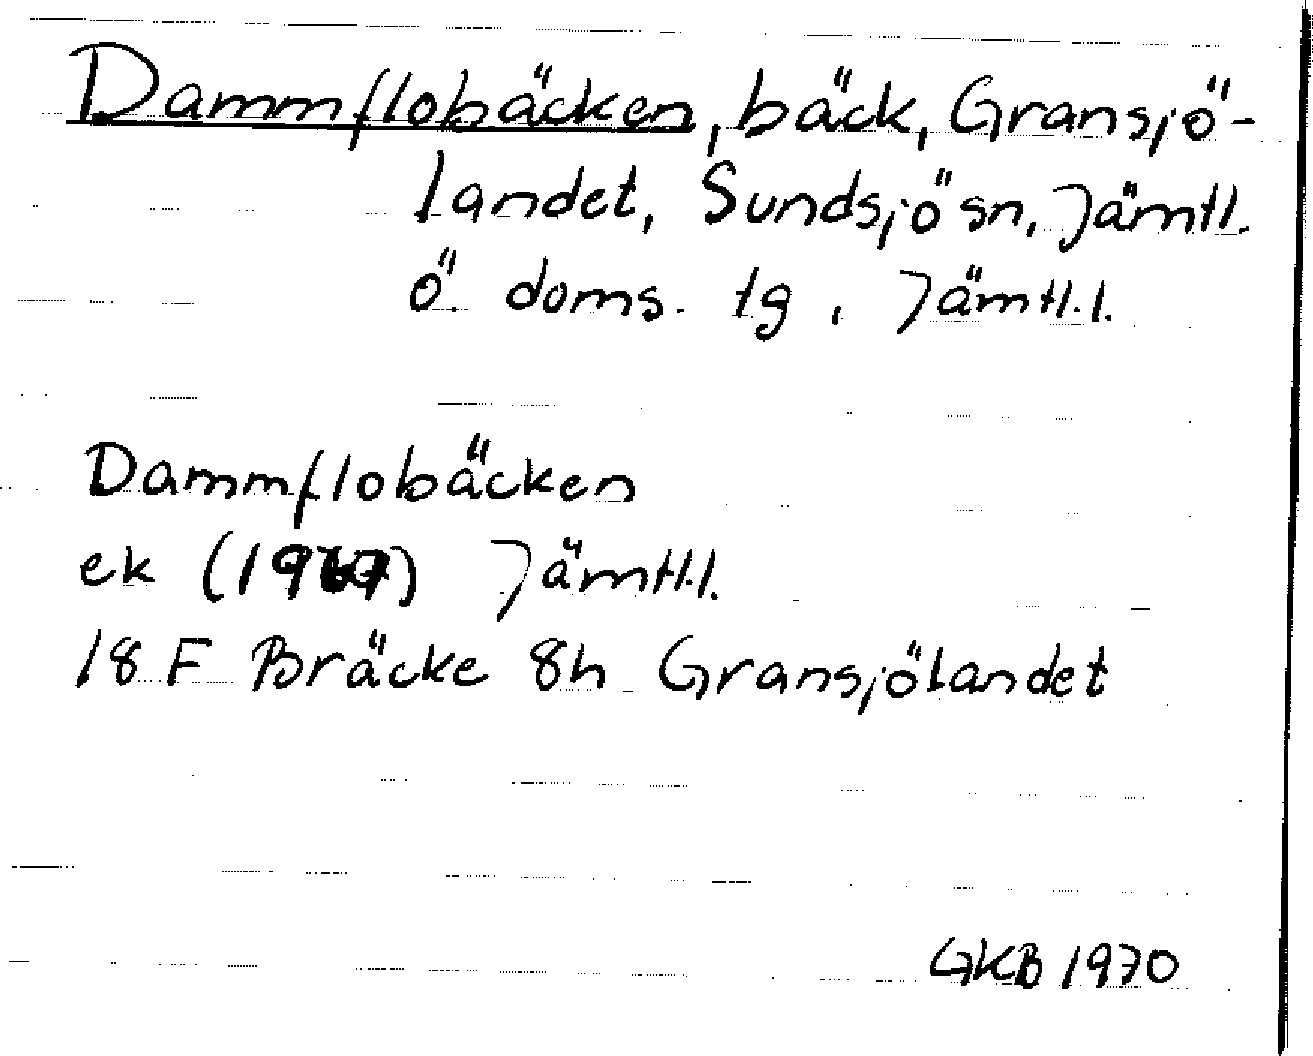 Dammflobäcken, bäck, Gransjö-
landet, Sundsjö sn, Jämtl.
ö. doms. tg, Jämtl.l.
Dammflobäcken
ek (1967) Jämtl.l.
18 F Bräcke 8h Gransjölandet
GKB 1970